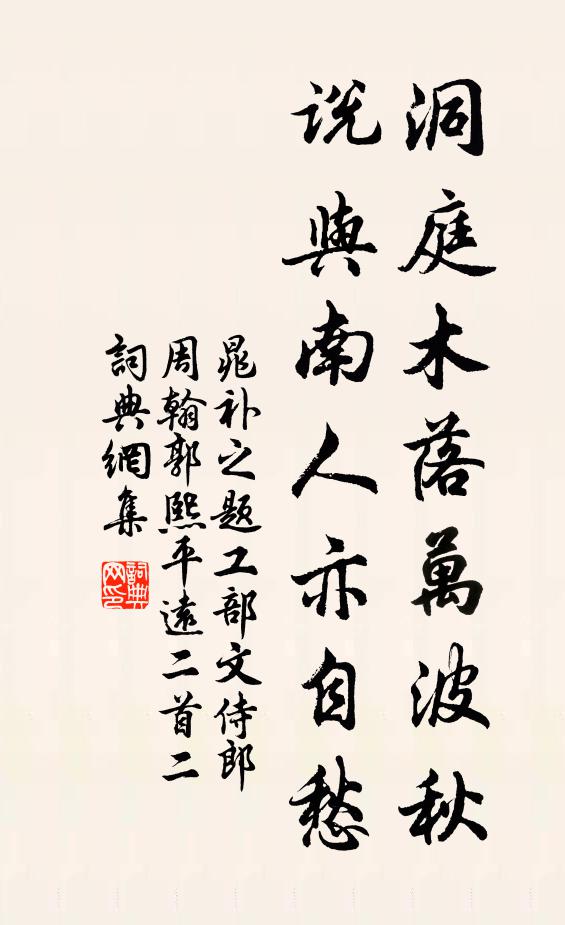 洞庭木落萬波秋
説與南人亦自愁
晁补之题工部文侍郎
周翰郭熙平遠二首二
詞典網集
詞典
网印